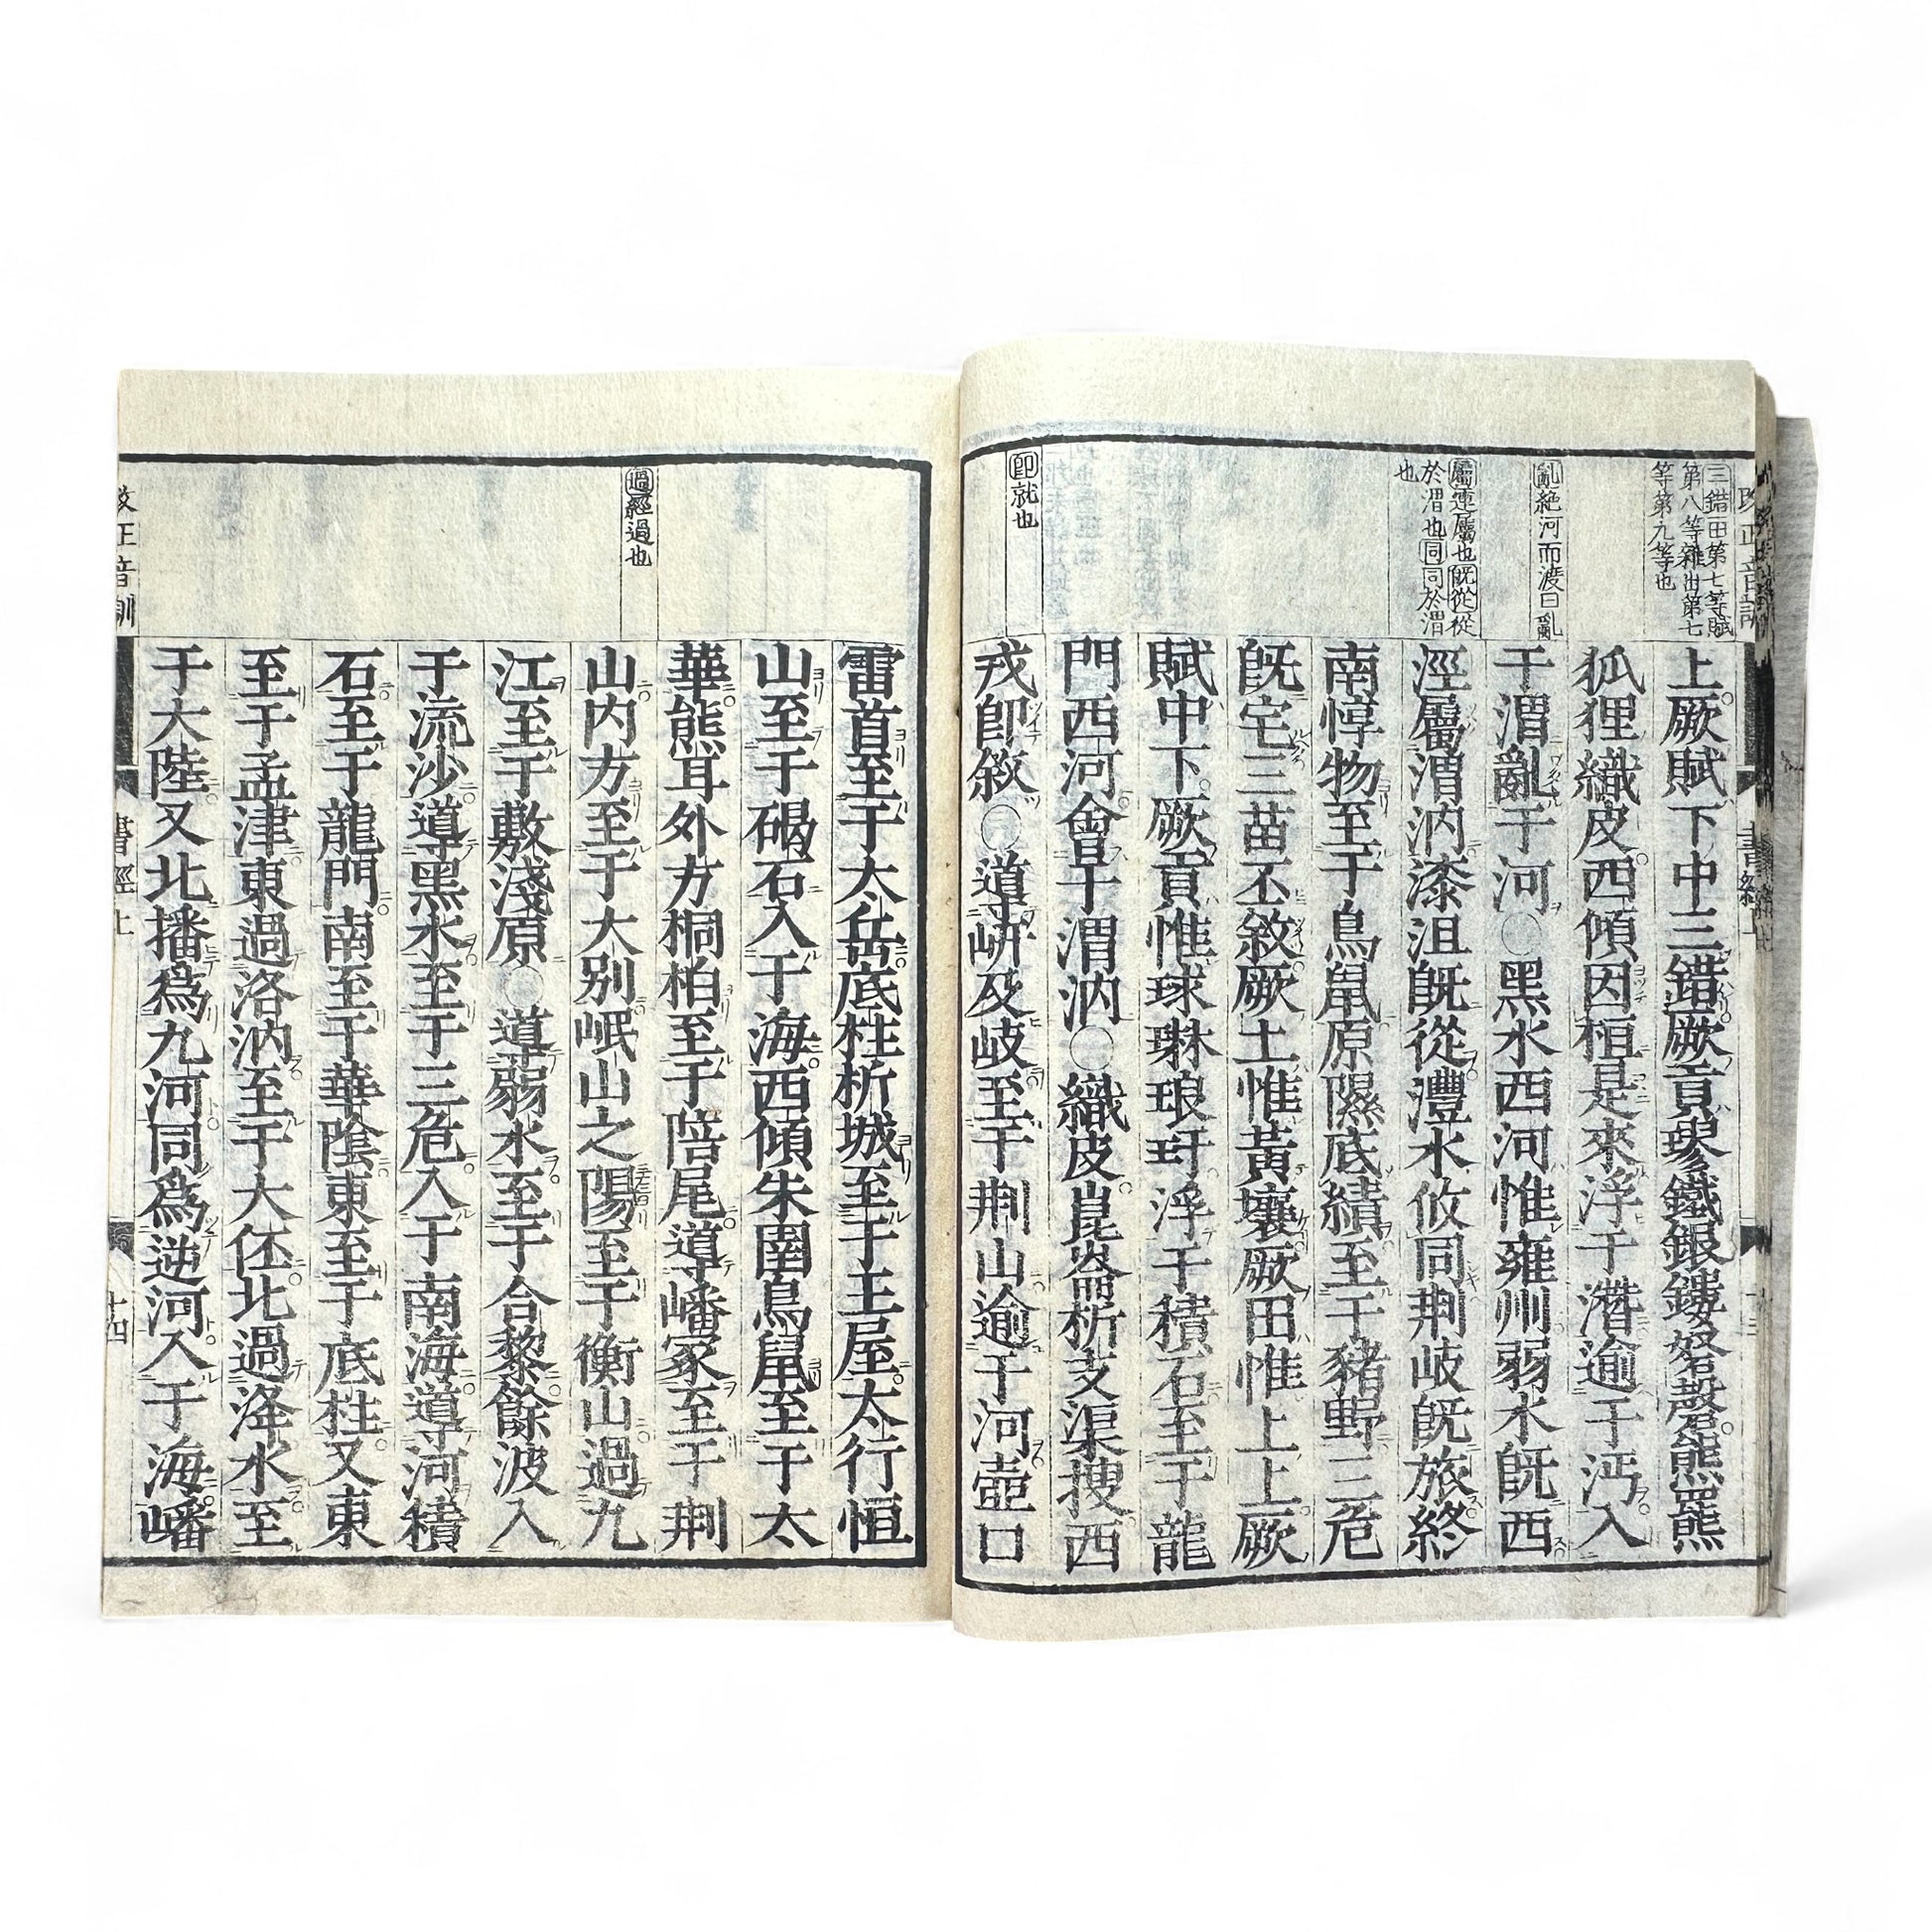 三錯田第七等賦
第八等雜出第七
等第九等也
亂絶河而渡曰亂
屬連屬也既從從
於渭也同同於渭
也
卽就也
上厥賦下中三錯厥貢璆鐵銀鏤砮磬熊羆
狐狸織皮西傾因桓是來浮于潛逾于沔入
于渭亂于河○黑水西河惟雍州弱水既西
涇屬渭汭漆沮既從灃水攸同荆岐既旅終
南惇物至于鳥鼠原隰底績至于豬野三危
既宅三苗丕敘厥土惟黃壤厥田惟上上厥
賦中下厥貢惟球琳琅玕浮于積石至于龍
門西河會于渭汭○織皮崑崙析支渠搜西
戎卽敘○導岍及岐至于荆山逾于河壺口
過經過也
雷首至于太岳底柱析城至于王屋太行恒
山至于碣石入于海西傾朱圉鳥鼠至于太
華熊耳外方桐柏至于陪尾導嶓冢至于荆
山内方至于大别岷山之陽至于衡山過九
江至于敷淺原○導弱水至于合黎餘波入
于流沙導黑水至于三危入于南海導河積
石至于龍門南至于華陰東至于底柱又東
至于孟津東過洛汭至于大伾北過洚水至
于大陸又北播爲九河同爲逆河入于海嶓
改正音訓
書經上
十四